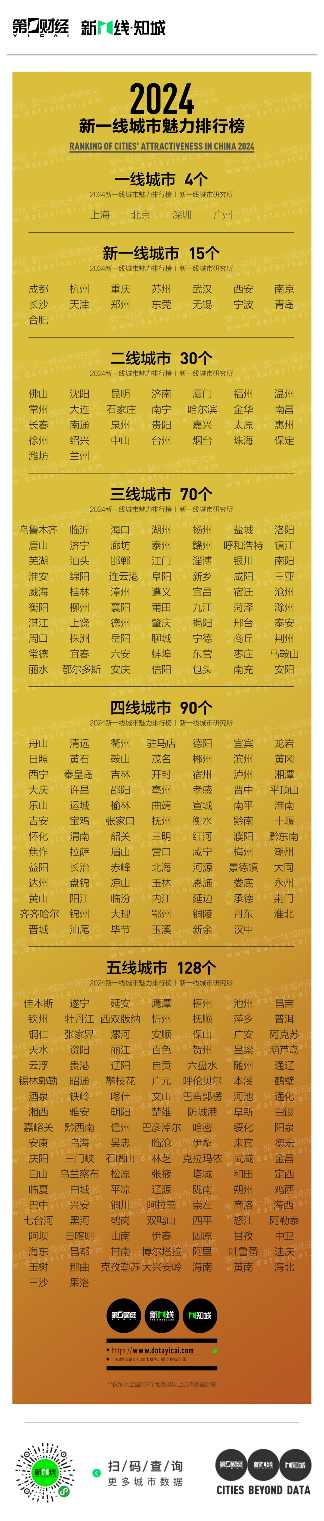 第一财经
YICAI
新一线·知城
2024
新一线城市魅力排行榜
RANKING OF CITIES' ATTRACTIVENESS IN CHINA 2024
一线城市 4个
2024新一线城市魅力排行榜｜新一线城市研究所
上海 北京 深圳 广州
新一线城市 15个
2024新一线城市魅力排行榜｜新一线城市研究所
成都 杭州 重庆 苏州 武汉 西安 南京
长沙 天津 郑州 东莞 无锡 宁波 青岛
合肥
二线城市 30个
2024新一线城市魅力排行榜｜新一线城市研究所
佛山 沈阳 昆明 济南 厦门 福州 温州
常州 大连 石家庄 南宁 哈尔滨 金华 南昌
长春 南通 泉州 贵阳 嘉兴 太原 惠州
徐州 绍兴 中山 台州 烟台 珠海 保定
潍坊 兰州
三线城市 70个
2024新一线城市魅力排行榜｜新一线城市研究所
乌鲁木齐 临沂 海口 湖州 扬州 盐城 洛阳
唐山 济宁 廊坊 泰州 赣州 呼和浩特 镇江
芜湖 汕头 邯郸 江门 淄博 银川 南阳
淮安 绵阳 连云港 阜阳 新乡 咸阳 三亚
威海 桂林 漳州 遵义 宜昌 宿迁 沧州
衡阳 柳州 襄阳 莆田 九江 菏泽 滁州
湛江 上饶 德州 肇庆 揭阳 邢台 泰安
周口 株洲 岳阳 聊城 宁德 商丘 荆州
常德 宜春 六安 蚌埠 东营 枣庄 马鞍山
丽水 鄂尔多斯 安庆 信阳 包头 南充 安阳
四线城市 90个
2024新一线城市魅力排行榜｜新一线城市研究所
舟山 清远 衢州 驻马店 德阳 宜宾 龙岩
日照 黄石 鞍山 茂名 郴州 滨州 黄冈
西宁 秦皇岛 吉林 开封 宿州 泸州 湘潭
大庆 许昌 邵阳 亳州 孝感 晋中 平顶山
乐山 运城 榆林 曲靖 宣城 南平 淮南
吉安 宝鸡 张家口 抚州 衡水 黔南 十堰
怀化 渭南 韶关 三明 红河 濮阳 黔东南
焦作 拉萨 眉山 营口 咸宁 梅州 潮州
益阳 长治 赤峰 北海 河源 景德镇 大同
达州 盘锦 凉山 玉林 恩施 娄底 永州
黄山 阳江 临汾 内江 延边 承德 荆门
齐齐哈尔 锦州 大理 鄂州 铜陵 丹东 淮北
晋城 汕尾 毕节 玉溪 新余 汉中
五线城市 128个
2024新一线城市魅力排行榜｜新一线城市研究所
佳木斯 遂宁 延安 鹰潭 梧州 池州 昌吉
钦州 牡丹江 西双版纳 忻州 抚顺 萍乡 普洱
铜仁 张家界 漯河 安顺 保山 广安 阿克苏
天水 资阳 丽江 百色 贺州 吕梁 葫芦岛
云浮 贵港 辽阳 自贡 六盘水 随州 通辽
锡林郭勒 昭通 攀枝花 广元 呼伦贝尔 本溪 鹤壁
酒泉 铁岭 喀什 文山 巴音郭楞 河池 通化
湘西 雅安 朝阳 楚雄 防城港 阜新 白银
嘉峪关 黔西南 儋州 巴彦淖尔 哈密 绥化 阳泉
安康 乌海 吴忠 临沧 伊犁 来宾 德宏
庆阳 三门峡 石嘴山 林芝 克拉玛依 武威 金昌
白山 乌兰察布 松原 张掖 塔城 和田 定西
临夏 白城 平凉 辽源 陇南 朔州 鸡西
巴中 兴安 铜川 阿拉善 崇左 商洛 海西
七台河 黑河 鹤岗 双鸭山 四平 怒江 阿勒泰
阿坝 日喀则 山南 伊春 固原 甘孜 中卫
海东 昌都 甘南 博尔塔拉 阿里 吐鲁番 迪庆
玉树 那曲 克孜勒苏 大兴安岭 海南 黄南 海北
三沙 果洛
第一财经 新一线 知城
https://www.datayicai.com
扫/码/查/询
更多城市数据
第一财经 新一线 知城
CITIES BEYOND DATA